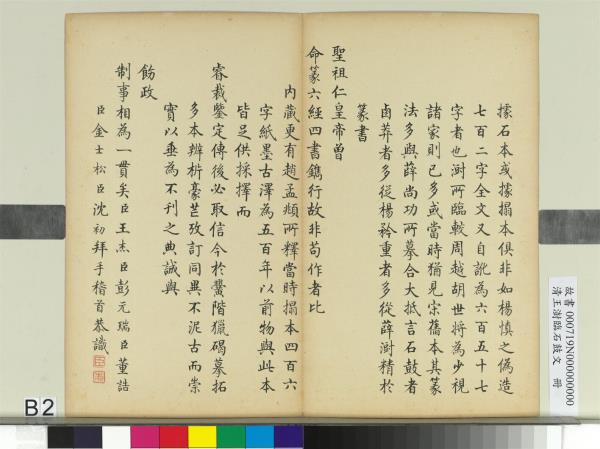 據石本或據搨本俱非如楊慎之偽造
七百二字全文又自訛為六百五十七
字者也澍所臨較周越胡世將為少視
諸家則已多或當時猶見宋舊本其篆
法多與薛尚功所摹合大抵言石鼓者
鹵莽者多從楊矜重者多從薛澍精於
篆書
聖祖仁皇帝曾
命篆六經四書鐫行故非苟作者比
內藏更有趙孟頫所釋當時搨本四百六
字紙墨古澤為五百年以前物與此本
皆足供採擇而
睿裁鑒定傳後必取信今於黌階獵碣摹拓
多本辨析豪芒攷訂同異不泥古而崇
實以垂為不刊之典誠與
飭政
制事相為一貫矣臣王杰臣彭元瑞臣董誥
臣金士松臣沈初拜手稽首恭識
故書 000719N000000000
清王澍臨石鼓文 冊
B2